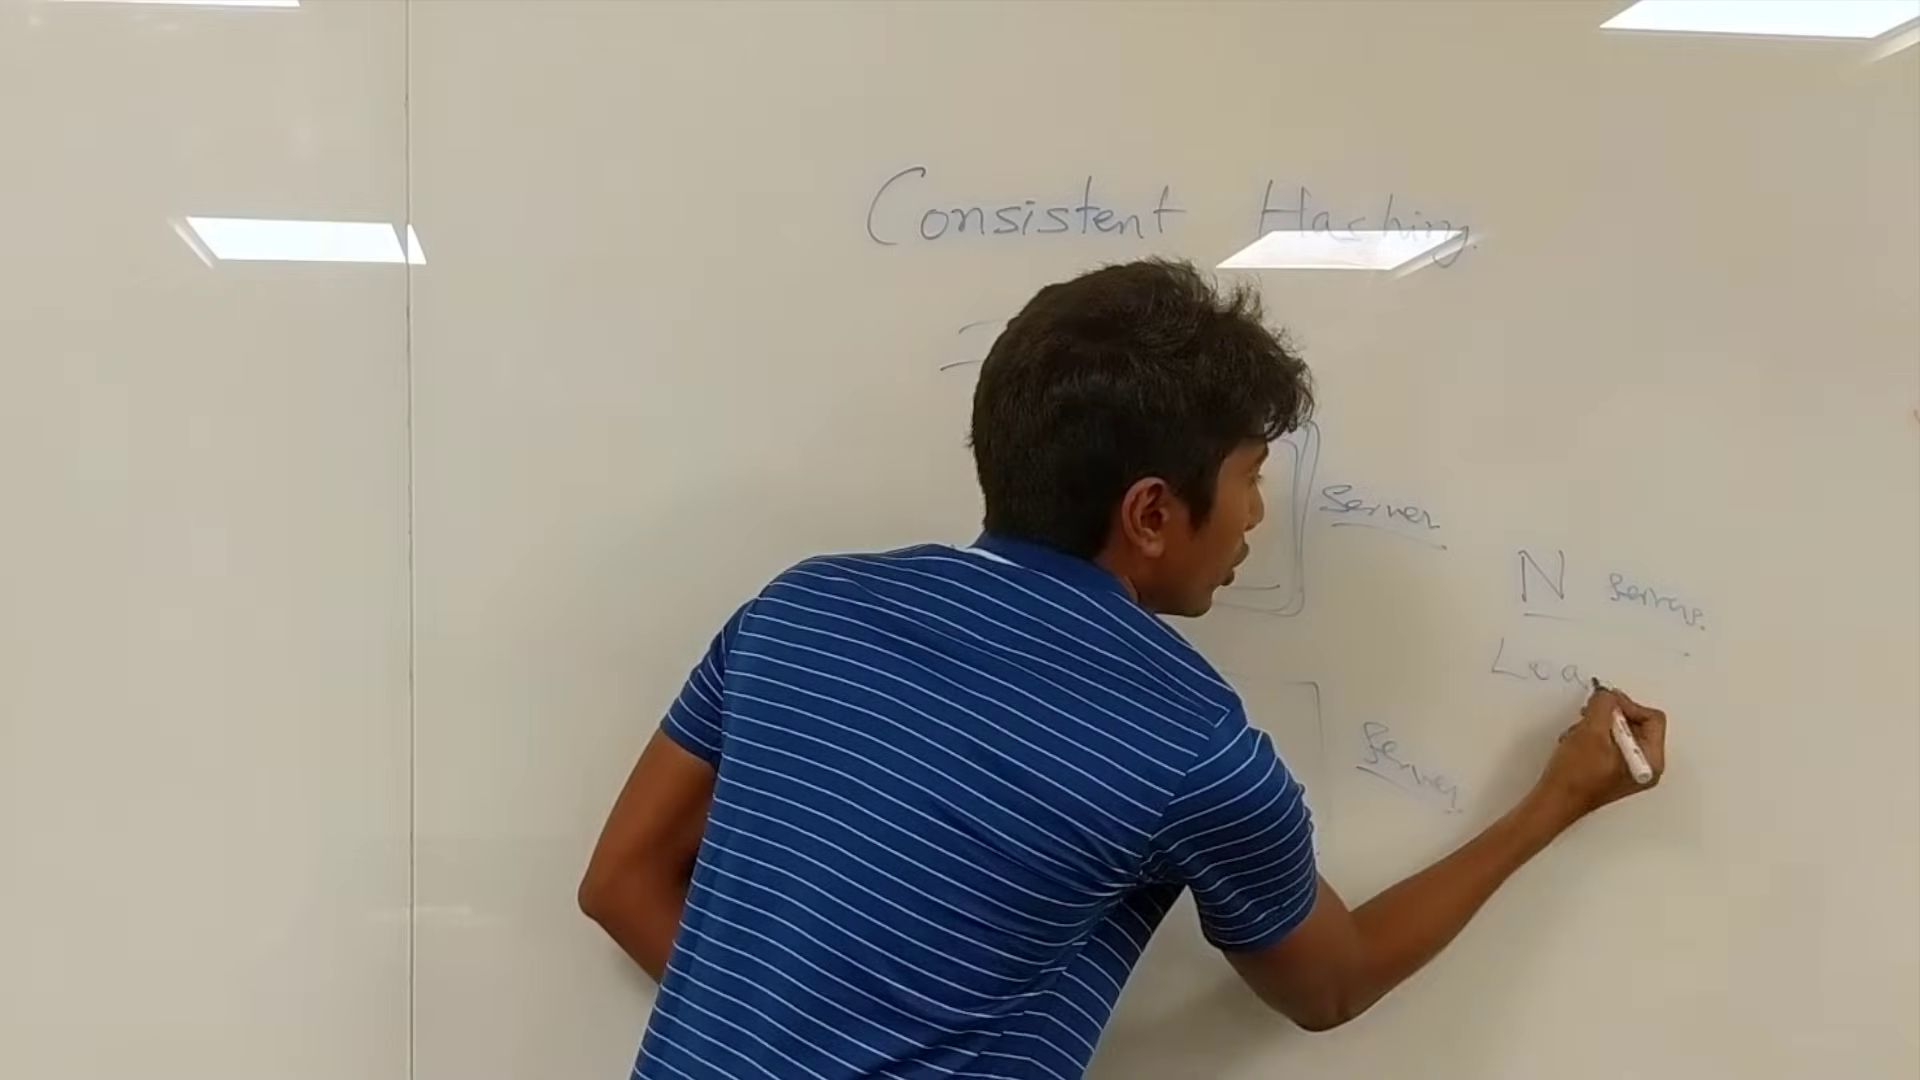 Consistent Hashing.
Server
N servers.
Loa
Server